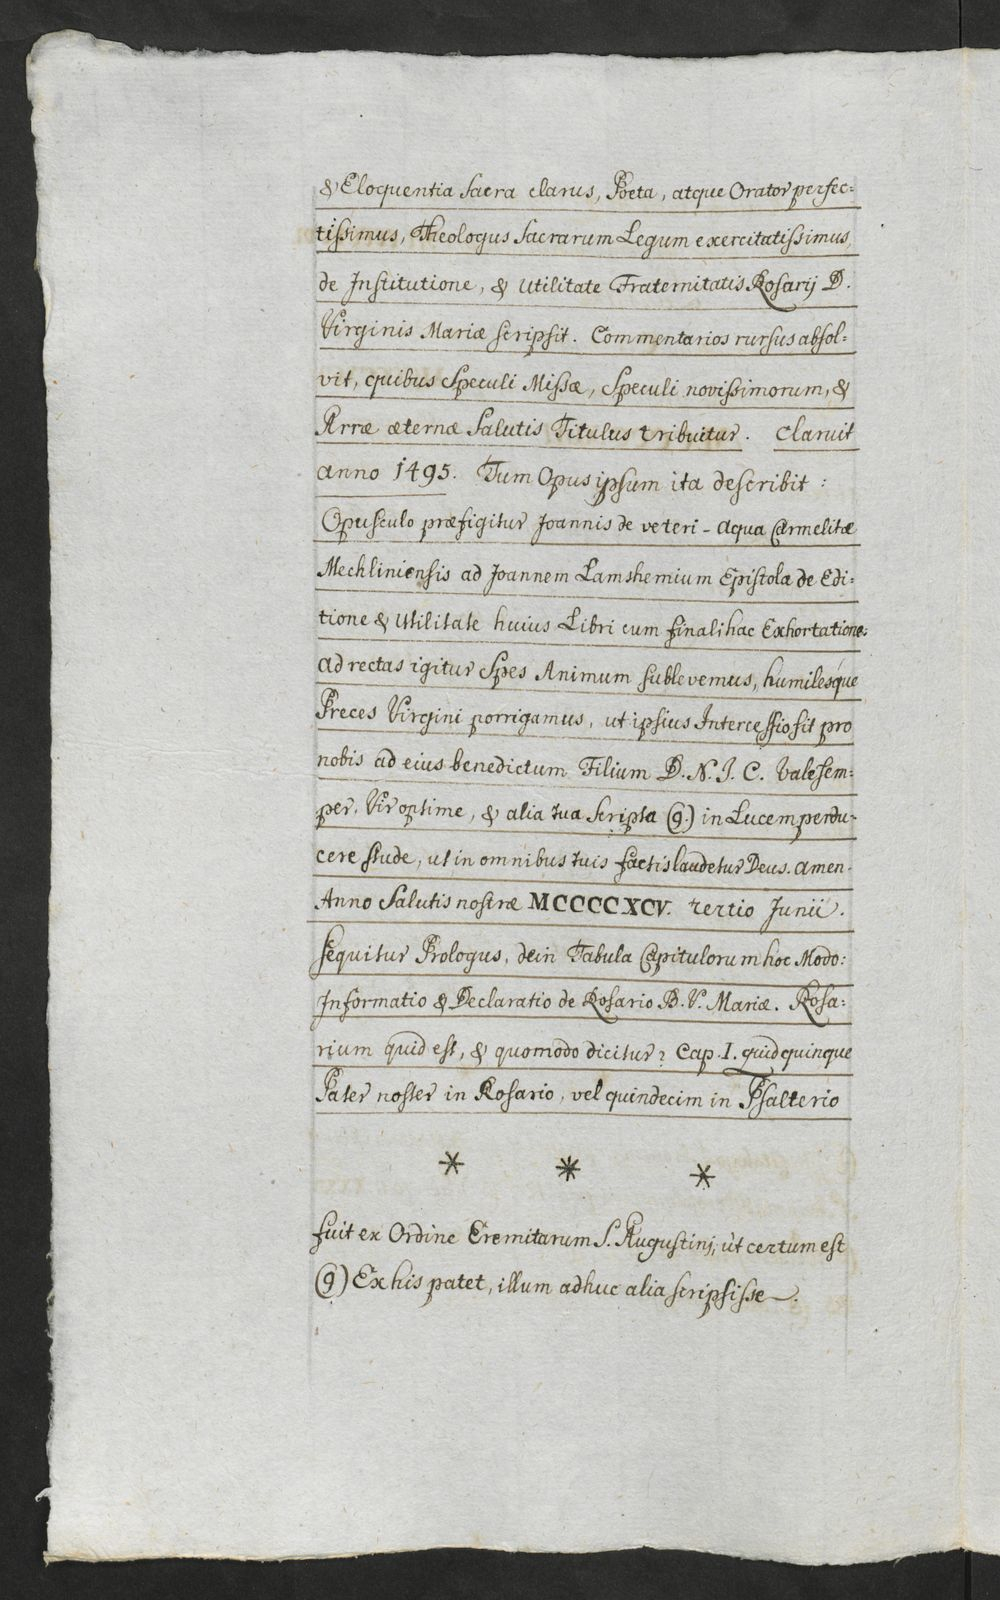 & Eloquentia Sacra clarus, Poeta, atque Orator perfec-
tissimus, Theologus Sacrarum Legum exercitatissimus,
de Institutione, & Utilitate Fraternitatis Rosarij D.
Virginis Mariæ scripsit. Commentarios rursus absol-
vit, quibus Speculi Missæ, Speculi novissimorum, &
Arræ æternæ Salutis Titulus tribuitur. Claruit
anno 1495. Tum Opus ipsum ita describit:
Opusculo præfigitur Joannis de veteri-Aqua Carmelitæ
Mechliniensis ad Joannem Lamshemium Epistola de Edi-
tione & Utilitate huius Libri cum finali hac Exhortatione:
Ad rectas igitur Spes Animum sublevemus, humilesque
Preces Virgini porrigamus, ut ipsius Intercessio sit pro
nobis ad eius benedictum Filium D. N. J. C. Vale sem-
per, Vir optime, & alia tua Scripta (9.) in Lucem perdu-
cere stude, ut in omnibus tuis factis laudetur Deus. Amen.
Anno Salutis nostræ MCCCCXCV. tertio Junii.
sequitur Prologus, dein Tabula Capitulorum hoc Modo:
Informatio & Declaratio de Rosario B. V. Mariæ. Rosa-
rium quid est, & quomodo dicitur? Cap. I. quid quinque
Pater noster in Rosario, vel quindecim in Psalterio
* * *
fuit ex Ordine Eremitarum S. Augustini, ùt certum est
(9) Ex his patet, illum adhuc alia scripsisse.